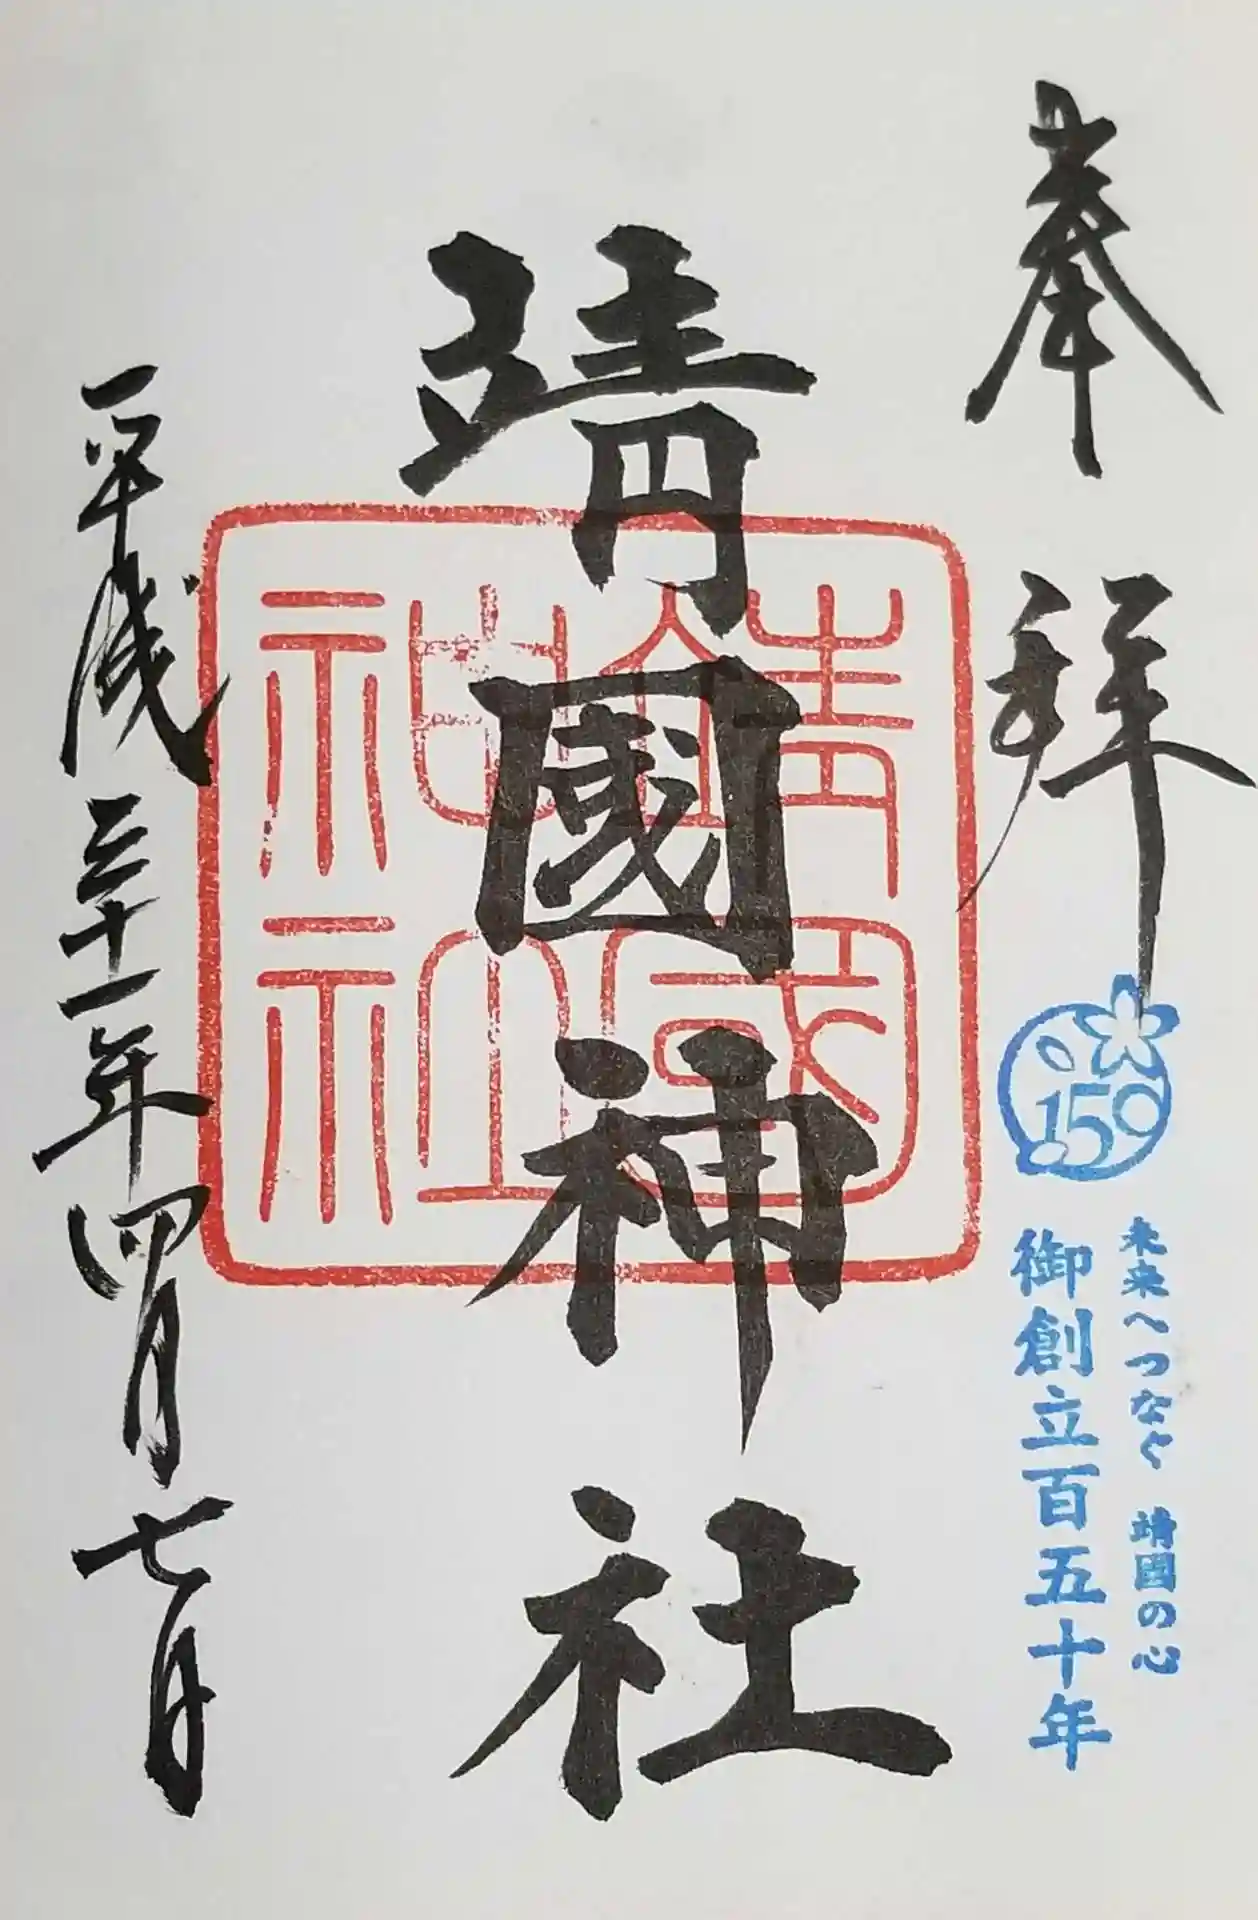 奉拝
150
未来へつなぐ 靖国の心
御創立百五十年
靖國神社
靖國
神社
平成三十一年四月七日